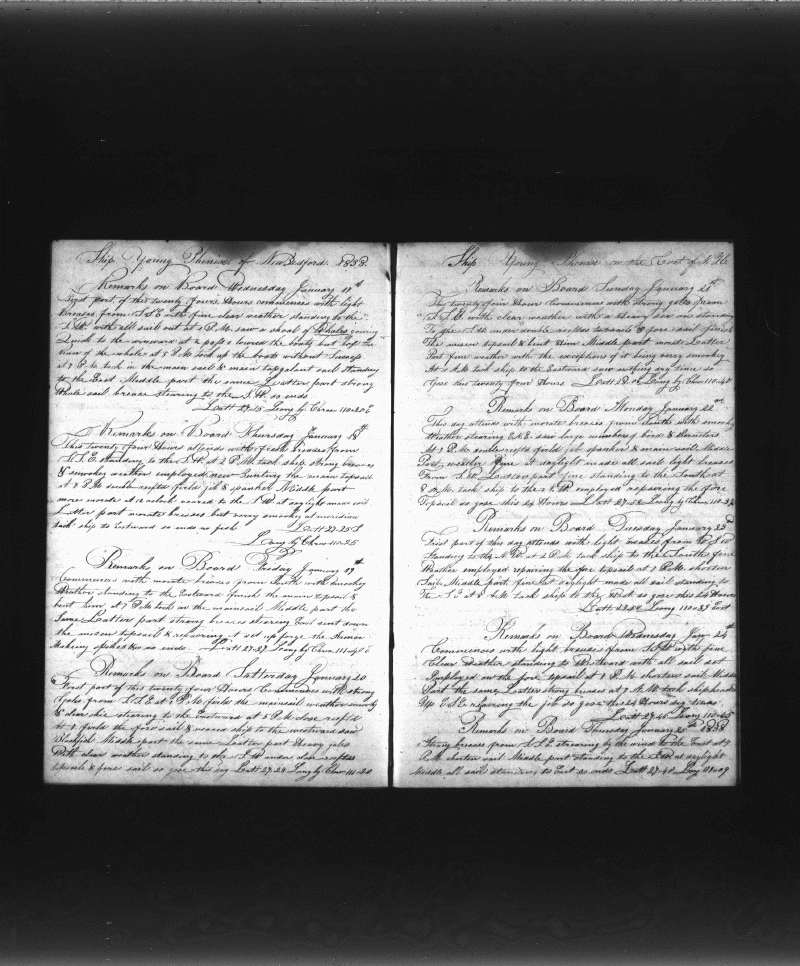 Ship Young Phenix of New Bedford 1838
Remarks on Board Wednesday January 17th
first part of this twenty fours Hours commences with light
Breases from S.S.E with fine clear weather standing to the
S.W. with all sail out at 2 P.M. saw a shoal of Whales going
Quick to the windward at 4 past 2 lowered the boats but
of the whale at 5 P.M. took up the boats without Success
at 7 P.M. took in the main sail & main topgalant sail standing
to the East Middle part the same Latter part strong
Whole sail brease stearing to the S.W. so ends
Latt 27-15 Long by Chro 110-20
Remarks on Board Thursday January 18th
This twenty four Hours attends with fresh breases from
S.S.E. standing to the S.W. at 2 P.M. tack ship strong breases
& smokey weather employed new the main topsail
at 7 P.M. double reefts furld jib & spanker Middle part
more morate at to the S.W at daylight made sail
Latter part morate breases but very smokey at meridian
tack ship to Eastward so ends no fish Latt 27-25 S
Long by Chro 110-25
Remarks on Board Friday January 19th
Commences with morate breases from South with smokey
Weather standing to the Eastward finish the main topsail &
bent him at 7 P.M. took in the mainsail Middle part the
Same Latter part strong breases stearing East sent down
the misen topsail & repairing it set up forge the Armor
Making so ends Latt 27-27 Long by Chro 111-40
Remarks on Board Satterday January 20
First part of this twenty four Hours Commences with strong
Gales from S.S.E at 2 P.M. furls the mainsail weather smokey
& clear ship stearing to the Eastward at 5 P.M. close reeft'd
at 7 furld the fore sail & weared ship to the westward saw
Blackfish Middle part the same Latter part Heavy gales
With clear weather standing to the S.W under close reeftes
topsails & fore sail so goes this day Latt 27-20 Long by Chro 111-20
Ship Young Phenix on the Cost of
Remarks on Board Sunday January 21st
This twenty four Hour Commences with strong gales from
S.S.E with clear weather with a Heavy sea on standing
To the S.W. under double reeftes topsails & fore sail finish
the misen topsail & bent Him Middle part morate Latter
Part fine weather with the exceptions of it being very smokey
At 11 A.M. tack ship to the Eastward saw nothing any time so
Goes this twenty four Hours Latt Long by Chro 110-40
Remarks on Board Monday January 22nd
This day attends with morate breases from South with smokey
Weather stearing E.S.E. saw large numbers of birds &
At 7 P.M. double reefts furld jib spanker & main sail Middle
Part weather fine at daylight made all sail light breases
From S.W. Latter part fine standing to the Southeast
8 A.M. tack ship to the S.W. employed repairing the fore
Topsail so goes this 24 Hours Latt Long by Chro 110-37
Remarks on Board Tuesday January 23rd
First part of this day attends with light breases from
Standing to the at 2 P.M. tack ship to the South fine
Weather employed repairing the fore topsail at 7 P.M. shorten
Sail Middle part fine at daylight made all sail standing to
The at 8 A.M. tack ship to the West so goes this 24 Hours
Latt Long 110-37 East
Remarks on Board Wednesday Jany 24th
Commences with light breases from S.S.W with fine
Clear Weather standing to with all sail out
Employed on the fore topsail at 7 P.M. shorten sail Middle
Part the same Latter strong breases at 9 A.M. tack ship
repairing the jib so goes these 24 Hours
Latt 27-45 Long 110-45
Remarks on Board Thursday January 25th 1838
Strong breases from S.S.E stearing by the wind to the East at 7
P.M. shorten sail Middle part standing to the S.W at daylight
Made all sail standing to East so ends Latt 27-40 Long